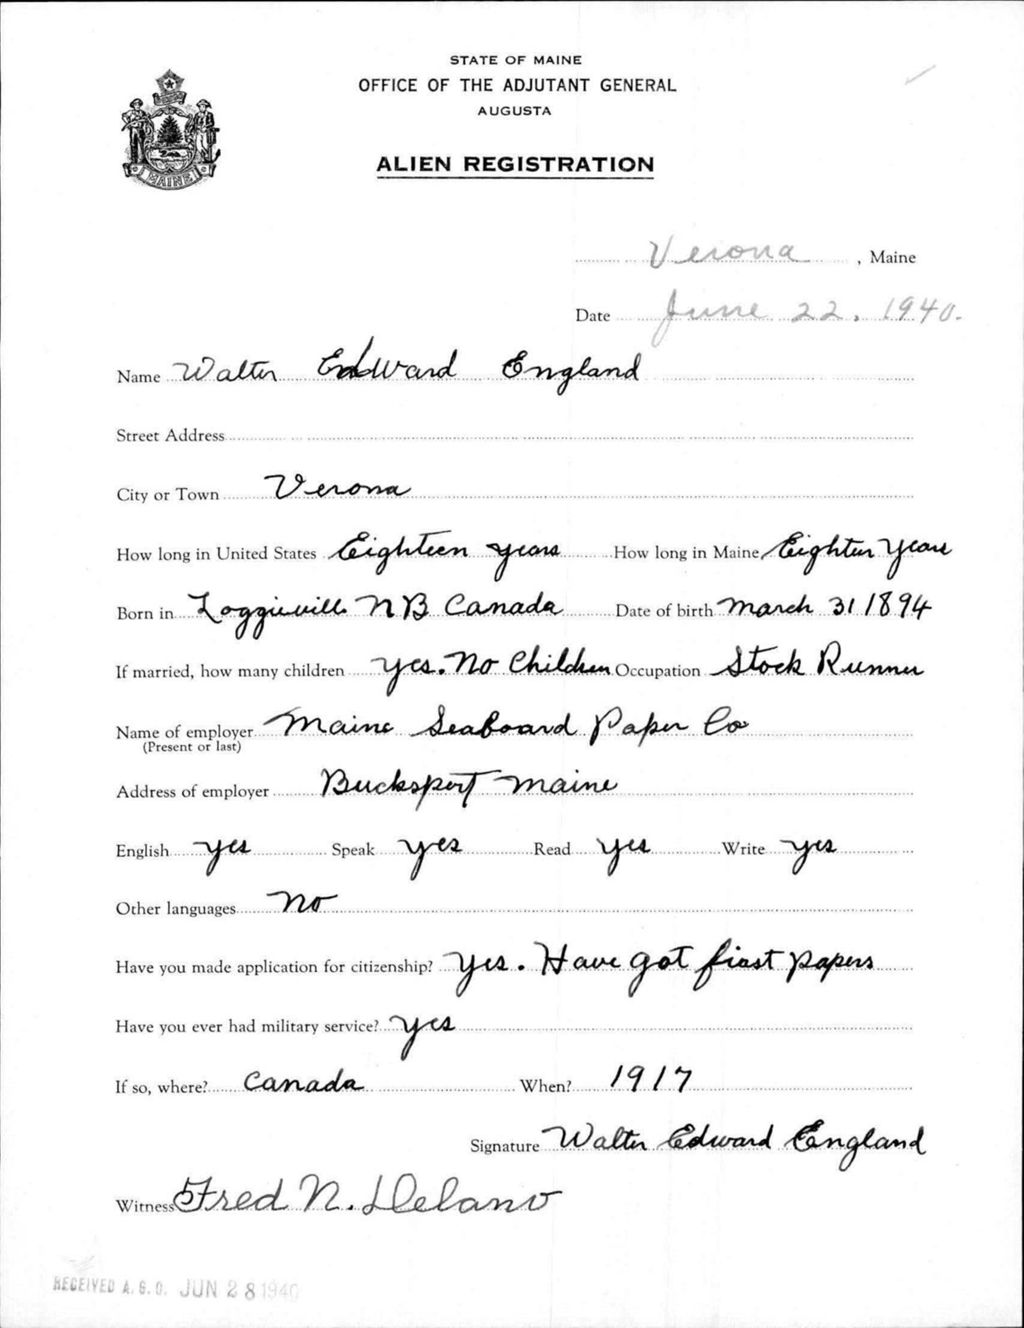 STATE OF MAINE
OFFICE OF THE ADJUTANT GENERAL
AUGUSTA
ALIEN REGISTRATION
MAINE
Verona, Maine
Date June 22, 1940.
Name Walter Edward England
Street Address
City or Town Verona
How long in United States Eighteen years How long in Maine Eighteen Years
Born in Loggieville NB Canada Date of birth March 31 1894
If married, how many children yes. No Children Occupation Stock Runner
Name of employer Maine Seaboard Paper Co
(Present or last)
Address of employer Bucksport Maine
English yes Speak yes Read yes Write yes
Other languages No
Have you made application for citizenship? Yes. Have got first papers
Have you ever had military service? yes
If so, where? Canada When? 1917
Signature Walter Edward England
Witness Fred N. Delano
RECEIVED A.G.O. JUN 28 1940